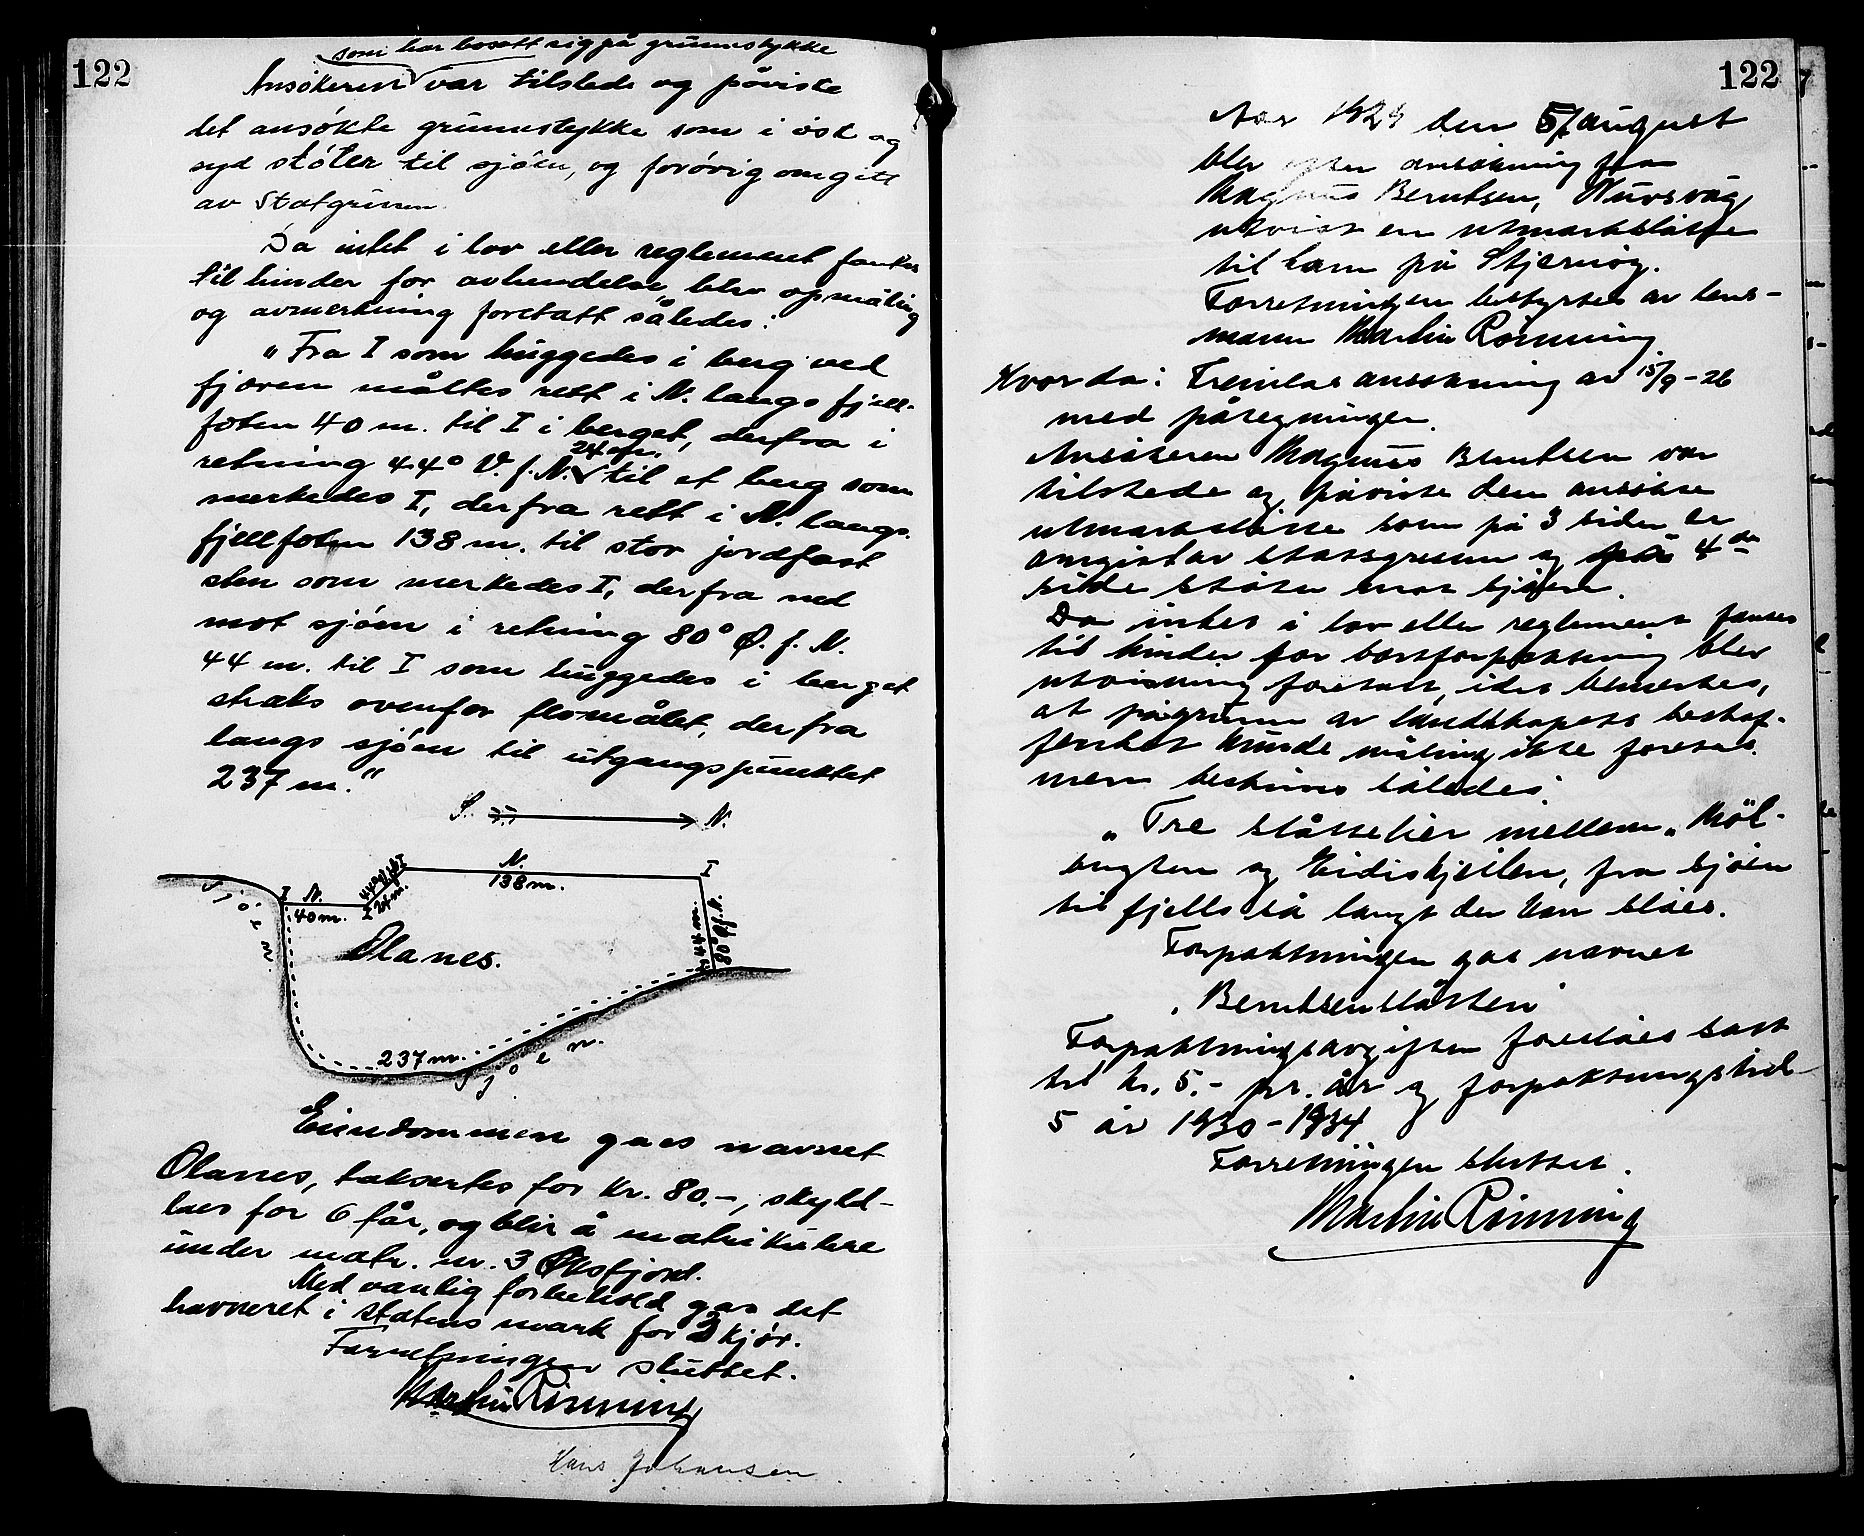 122
som har bosatt sig på grunnstykke
Ansökeren var tilstede og påviste
det ansökte grunnstykke som i öst og
syd stöter til sjöen, og forövrig omgitt
av Statsgrunn.
Da intet i lov eller reglement fantes
til hinder for avhendelse, blev opmåling
og avmerkning foretatt således:
"Fra I som huggedes i berg ved
fjæren måltes rett i N. langs fjell-
foten 40 m. til I i berget, derfra i
retning 44° V. f. N. 24 m. til et berg som
merkedes I, derfra rett i N. langs
fjellfoten 138 m. til stor jordfast
sten som merkedes I, derfra ned
mot sjöen i retning 80° Ø. f. N.
44 m. til I som hugges i berget
straks ovenfor flomålet, derfra
langs sjöen til utgangspunktet
237 m."
S. N.
I N. 40 m. I 44° V.f.N. 24 m. I N. 138 m. I
44 m. 80° Ø.f.N.
Sjöen
Olanes.
237 m.
Sjöen.
Eiendommen gaes navnet
Olanes, taksertes for kr. 80.-, skyld-
laes for 6 får, og blir å matrikulere
under matr. nr. 3 Øksfjord.
Med vanlig forbehold gaes det
havneret i statens mark for 2 kjör.
Forretningen sluttet.
Martin Rönning
Hans Johansen
122
Aar 1929 den 5/ august
blev efter ansökning fra
Magnus Berntsen, Nuvsvåg
utvist en utmarkslåtte
til ham på Stjernöy.
Forretningen bestyrtes av lens-
mann Martin Rönning.
Hvorda: Fremlas ansökning av 15/9-26
med påtegninger.
Ansökeren Magnus Berntsen var
tilstede og påviste den ansökte
utmarkslåtte som på 3 sider er
omgitt av statsgrunn og på 4de
side stöter mot sjöen.
Da intet i lov eller reglement fantes
til hinder for bortforpaktning blev
utvisning foretatt, idet bemerkes,
at pågrunn av landskapets beskaf-
fenhet kunde måling ikke foretas.
men bestemt således:
"Tre slåttelier mellem "Möl-
bugten og Eidiskjeilen, fra sjöen
til fjells så langt der kan slåes.
Forpaktningen gaes navnet
"Berntsenslåtten"
Forpaktningsavgiften foreslåes satt
til kr. 5.- pr. år og forpaktningstid
5 år 1930-1934
Forretningen sluttet.
Martin Rönning